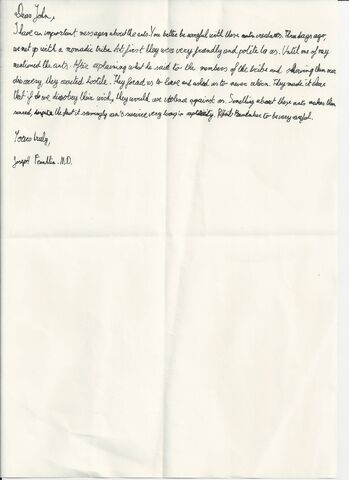 Dear John,
I have an important message about the ants. You better be careful with those creatures. Three days ago,
we met up with a nomadic tribe. At first they were very friendly and polite to us. Until one of my
mentioned the ants. After explaining what he said to the members of the tribe and showing them our
discovery, they acted hostile. They forced us to leave and asked us to never return. They made it clear
that if we disobey their wish, they would use violence against us. Something about these ants makes them
scared, despite the fact it seemingly can't survive very long in captivity. to be very careful.
Yours truly,
Joseph M.D.